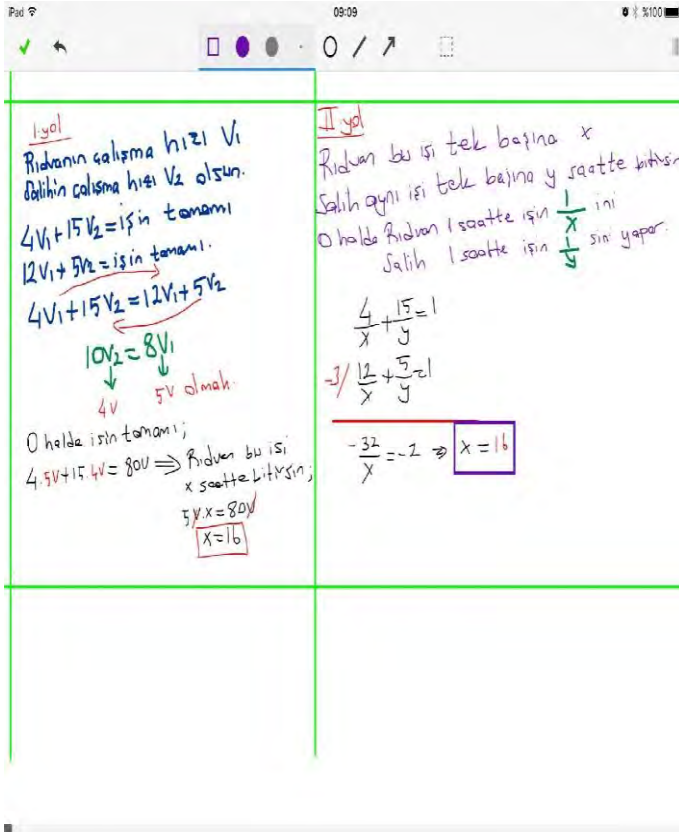 iPad
09:09
%100
I.yol
Rıdvanın çalışma hızı V1
Salihin çalışma hızı V2 olsun.
4V1+15V2=işin tamamı
12V1+5V2=işin tamamı.
4V1+15V2=12V1+5V2
10V2=8V1
4V 5V olmalı.
O halde işin tamamı;
4.5V+15.4V=80V ⇒ Rıdvan bu işi
x saatte bitirsin;
5V.x=80V
x=16
II.yol
Rıdvan bu işi tek başına x
Salih aynı işi tek başına y saatte bitirsin
O halde Rıdvan 1 saatte işin 1/x ini
Salih 1 saatte işin 1/y sini yapar.
4/x+15/y=1
-3/ 12/x+5/y=1
-32/x=-2 ⇒ x=16